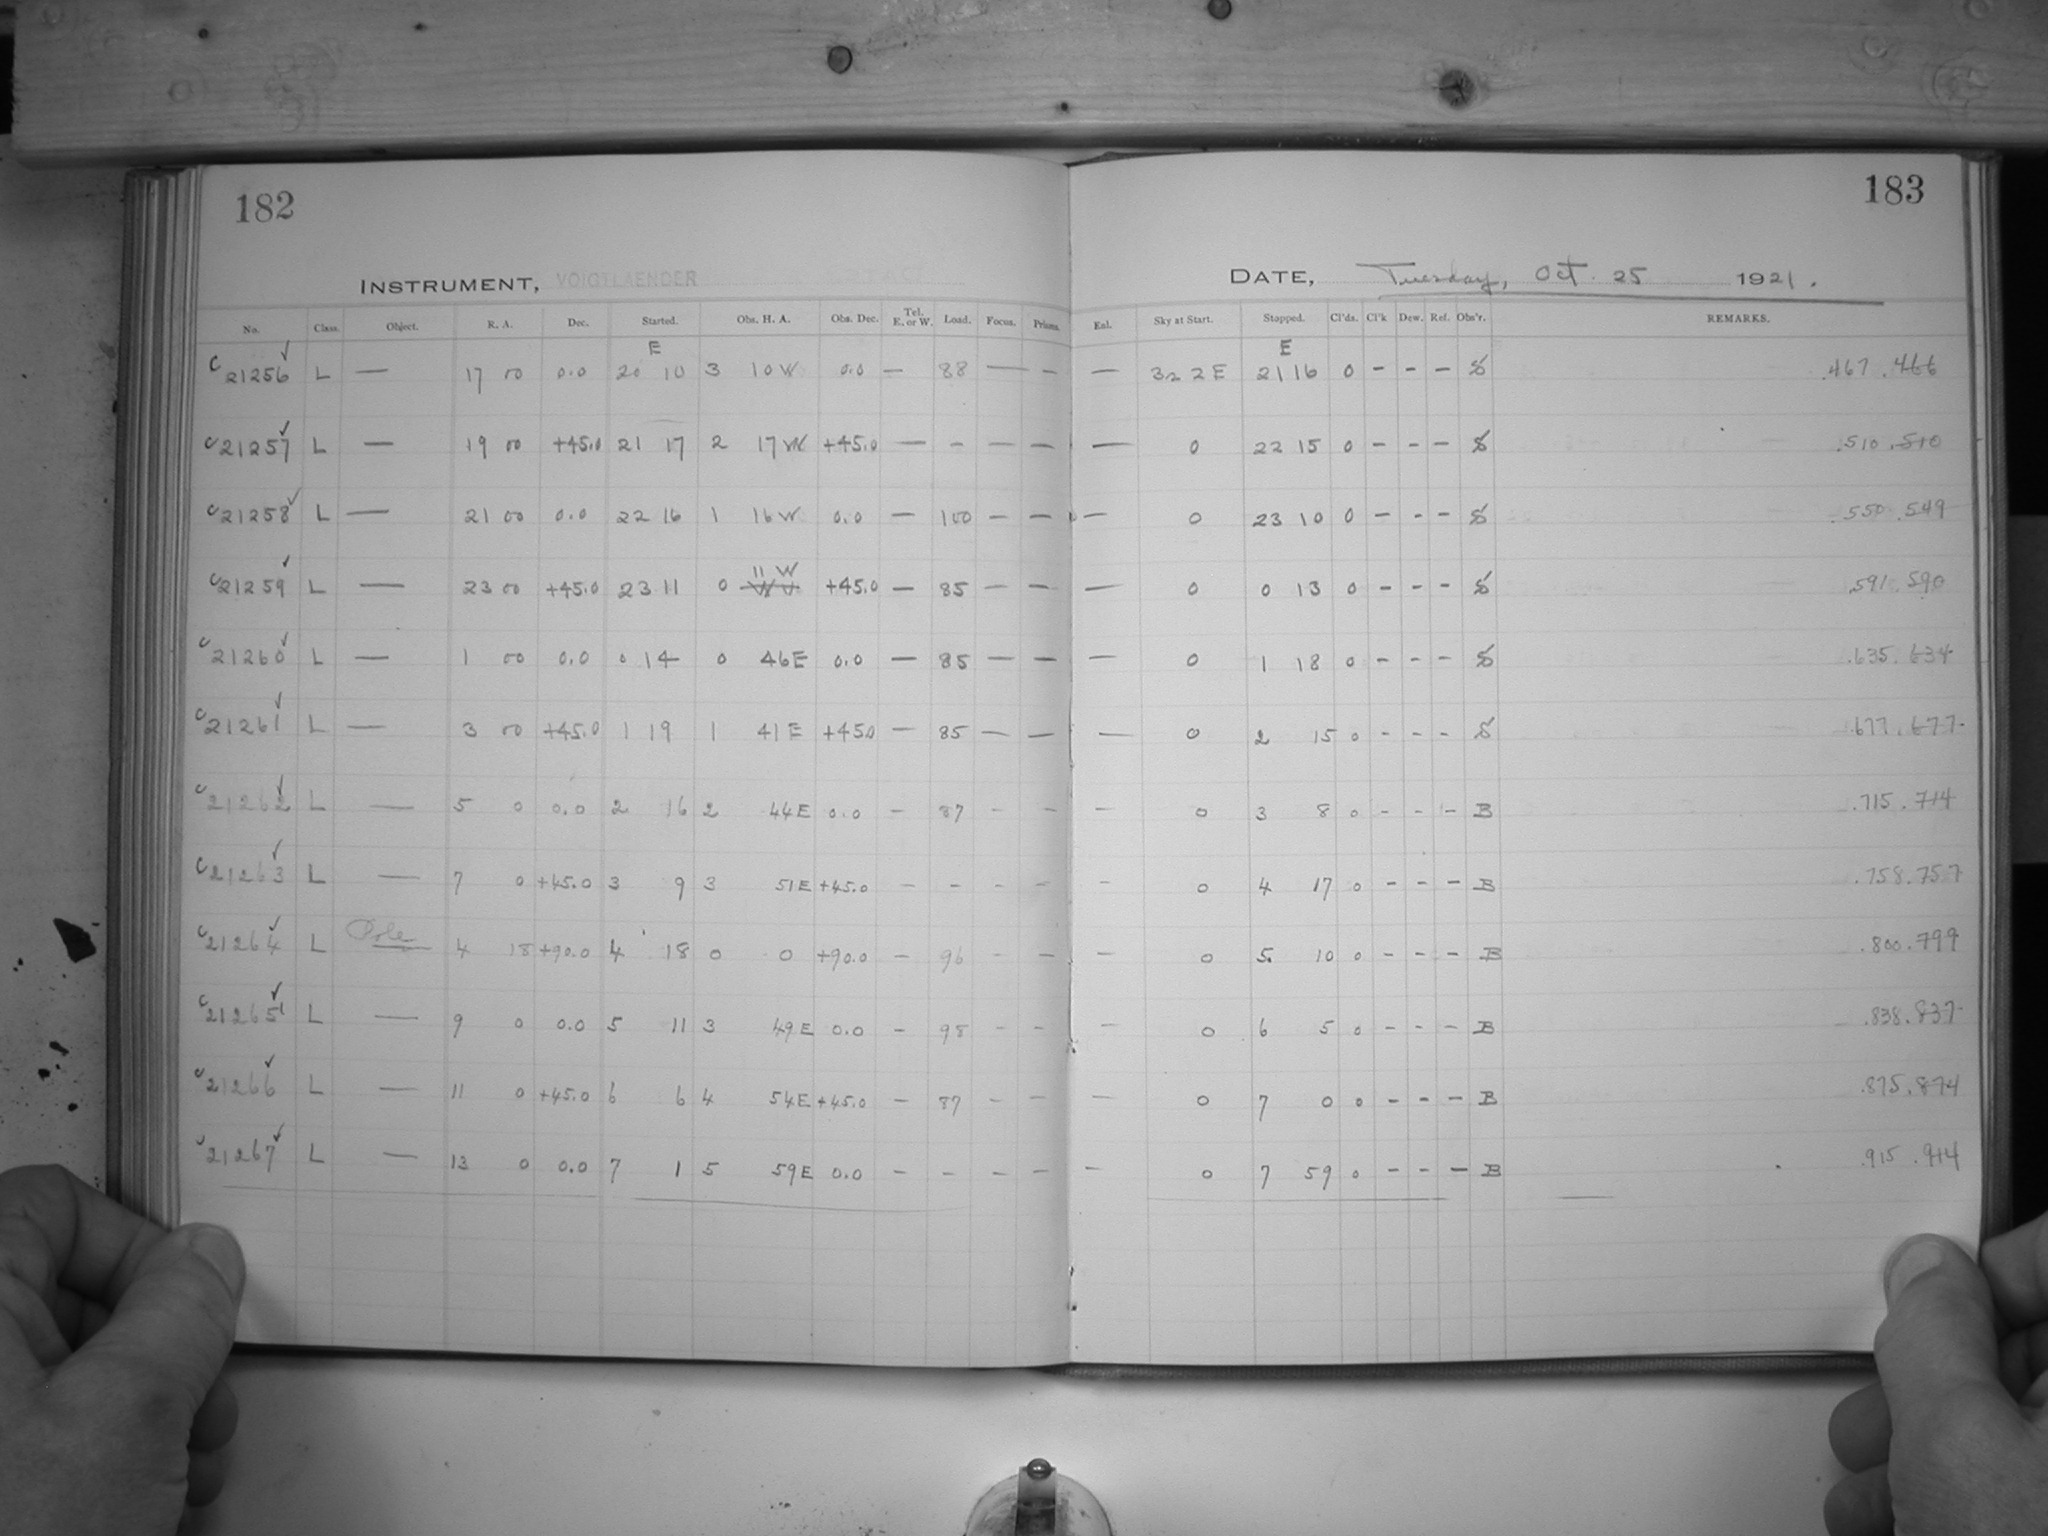 182
183
INSTRUMENT, VOIGTLAENDER
DATE, Tuesday, Oct. 25 1921.
No. Class. Object. R. A. Dec. Started. Obs. H. A. Obs. Dec. Tel. E. or W. Load. Focus. Prisms. Enl. Sky at Start. Stopped. Cl'ds. Cl'k Dew. Ref. Obs'r. REMARKS.
E E
C 21256 ✓ L — 17 00 0.0 20 10 3 10 W 0.0 — 88 — — — 322E 21 16 0 - - - S .467 .466
C 21257 ✓ L — 19 00 +45.0 21 17 2 17 W +45.0 — - — — — 0 22 15 0 - - - S .510 .510
C 21258 ✓ L — 21 00 0.0 22 16 1 16 W 0.0 — 100 — — — 0 23 10 0 - - - S .550 .549
11 W
C 21259 ✓ L — 23 00 +45.0 23 11 0 +45.0 — 85 — — — 0 0 13 0 - - - S .591 .590
C 21260 ✓ L — 1 00 0.0 0 14 0 46 E 0.0 — 85 — — — 0 1 18 0 - - - S .635 .634
C 21261 ✓ L — 3 00 +45.0 1 19 1 41 E +45.0 — 85 — — — 0 2 15 0 - - - S .677 .677
C 21262 ✓ L — 5 0 0.0 2 16 2 44 E 0.0 - 87 - - - 0 3 8 0 - - - B .715 .714
C 21263 ✓ L — 7 0 +45.0 3 9 3 51 E +45.0 - - - - - 0 4 17 0 - - - B .758 .757
C 21264 ✓ L Pole 4 18 +90.0 4 18 0 0 +90.0 - 96 - - - 0 5 10 0 - - - B .800 .799
C 21265 ✓ L — 9 0 0.0 5 11 3 49 E 0.0 - 98 - - - 0 6 5 0 - - - B .838 .837
C 21266 ✓ L — 11 0 +45.0 6 6 4 54 E +45.0 - 87 - - - 0 7 0 0 - - - B .875 .874
C 21267 ✓ L — 13 0 0.0 7 1 5 59 E 0.0 - - - - - 0 7 59 0 - - - B .915 .914